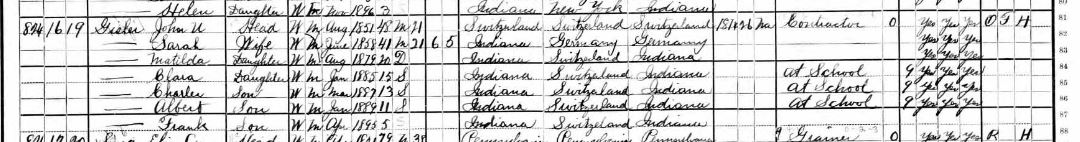 Helen Daughter W Nov 1896 3 Indiana New York Indiana 81
894 16 19 Gisler John U Head W m Aug 1851 48 M 21 Switzerland Switzerland Switzerland 18 26 Na Contractor 0 Yes Yes Yes O F H
Sarah Wife W June 1858 41 M 21 6 5 Indiana Germany Germany Yes Yes Yes 82
Matilda Daughter W Aug 1879 20 D Indiana Switzeland Indiana Yes Yes Yes 83
Clara Daughter W Jan 1885 15 S Indiana Switzeland Indiana At School 9 Yes Yes Yes 84
Charles Son W m Mar 1887 13 S Indiana Switzeland Indiana At School 9 Yes Yes Yes 85
Albert Son W m Jan 1889 11 S Indiana Switzeland Indiana At School 9 Yes Yes Yes 86
Frank Son W m Apr 1895 5 Indiana Switzeland Indiana
Head W m 38 Pennsylvania Pennsylvania Pennsylvania Grainer 0 Yes Yes Yes R H 88